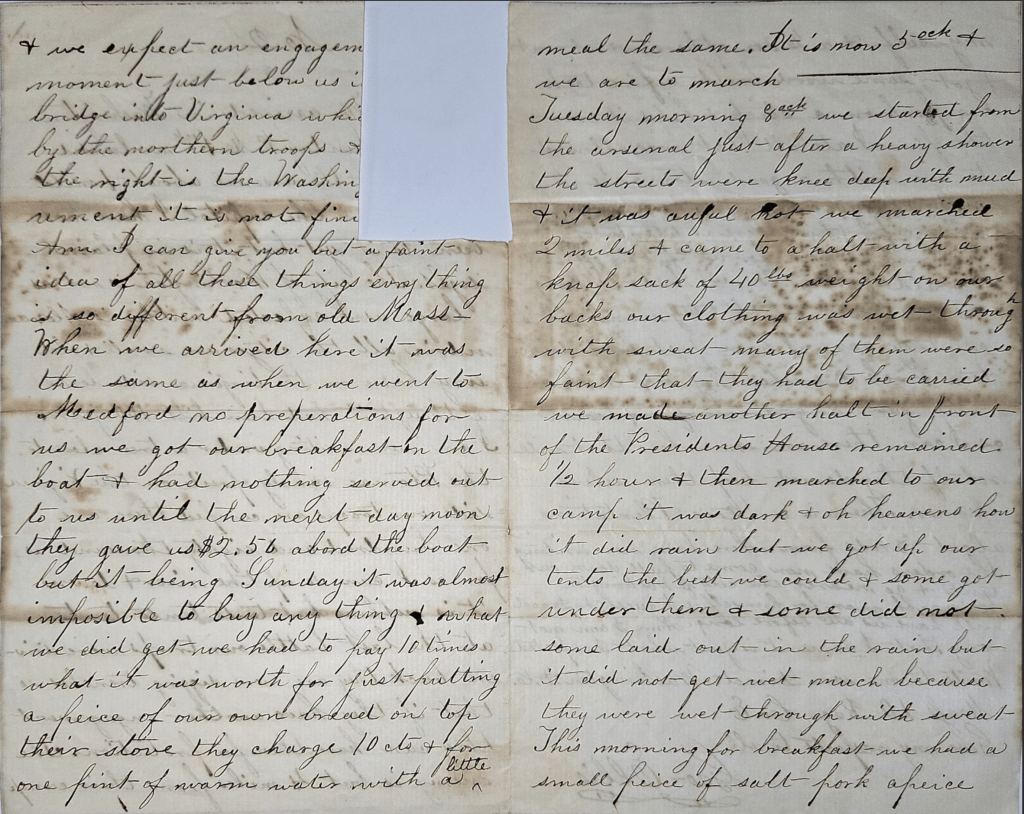 & we expect an engagem
moment just below us i
bridge into Virginia whic
by the northern troops &
the right is the Washing
ument it is not fini
Am I can give you but a faint
idea of all these things every thing
is so different from old Mass-
When we arrived here it was
the same as when we went to
Medford no preperations for
us we got our breakfast on the
boat & had nothing served out
to us until the next day noon
they gave us $2.56 abord the boat
but it being Sunday it was almost
imposible to buy any thing & what
we did get we had to pay 10 times
what it was worth for just putting
a peice of our own bread on top
their stove they charge 10 cts & for
one pint of warm water with a little
meal the same. It is now 5 ock &
we are to march
Tuesday morning 8 ock we started from
the arsenal just after a heavy shower
the streets were knee deep with mud
& it was awful hot we marched
2 miles & came to a halt with a
knap sack of 40 lbs weight on our
backs our clothing was wet through
with sweat many of them were so
faint that they had to be carried
we made another halt in front
of the Presidents House remained
1/2 hour & then marched to our
camp it was dark & oh heavens how
it did rain but we got up our
tents the best we could & some got
under them & some did not.
some laid out in the rain but
it did not get wet much because
they were wet through with sweat
This morning for breakfast we had a
small peice of salt pork apeice